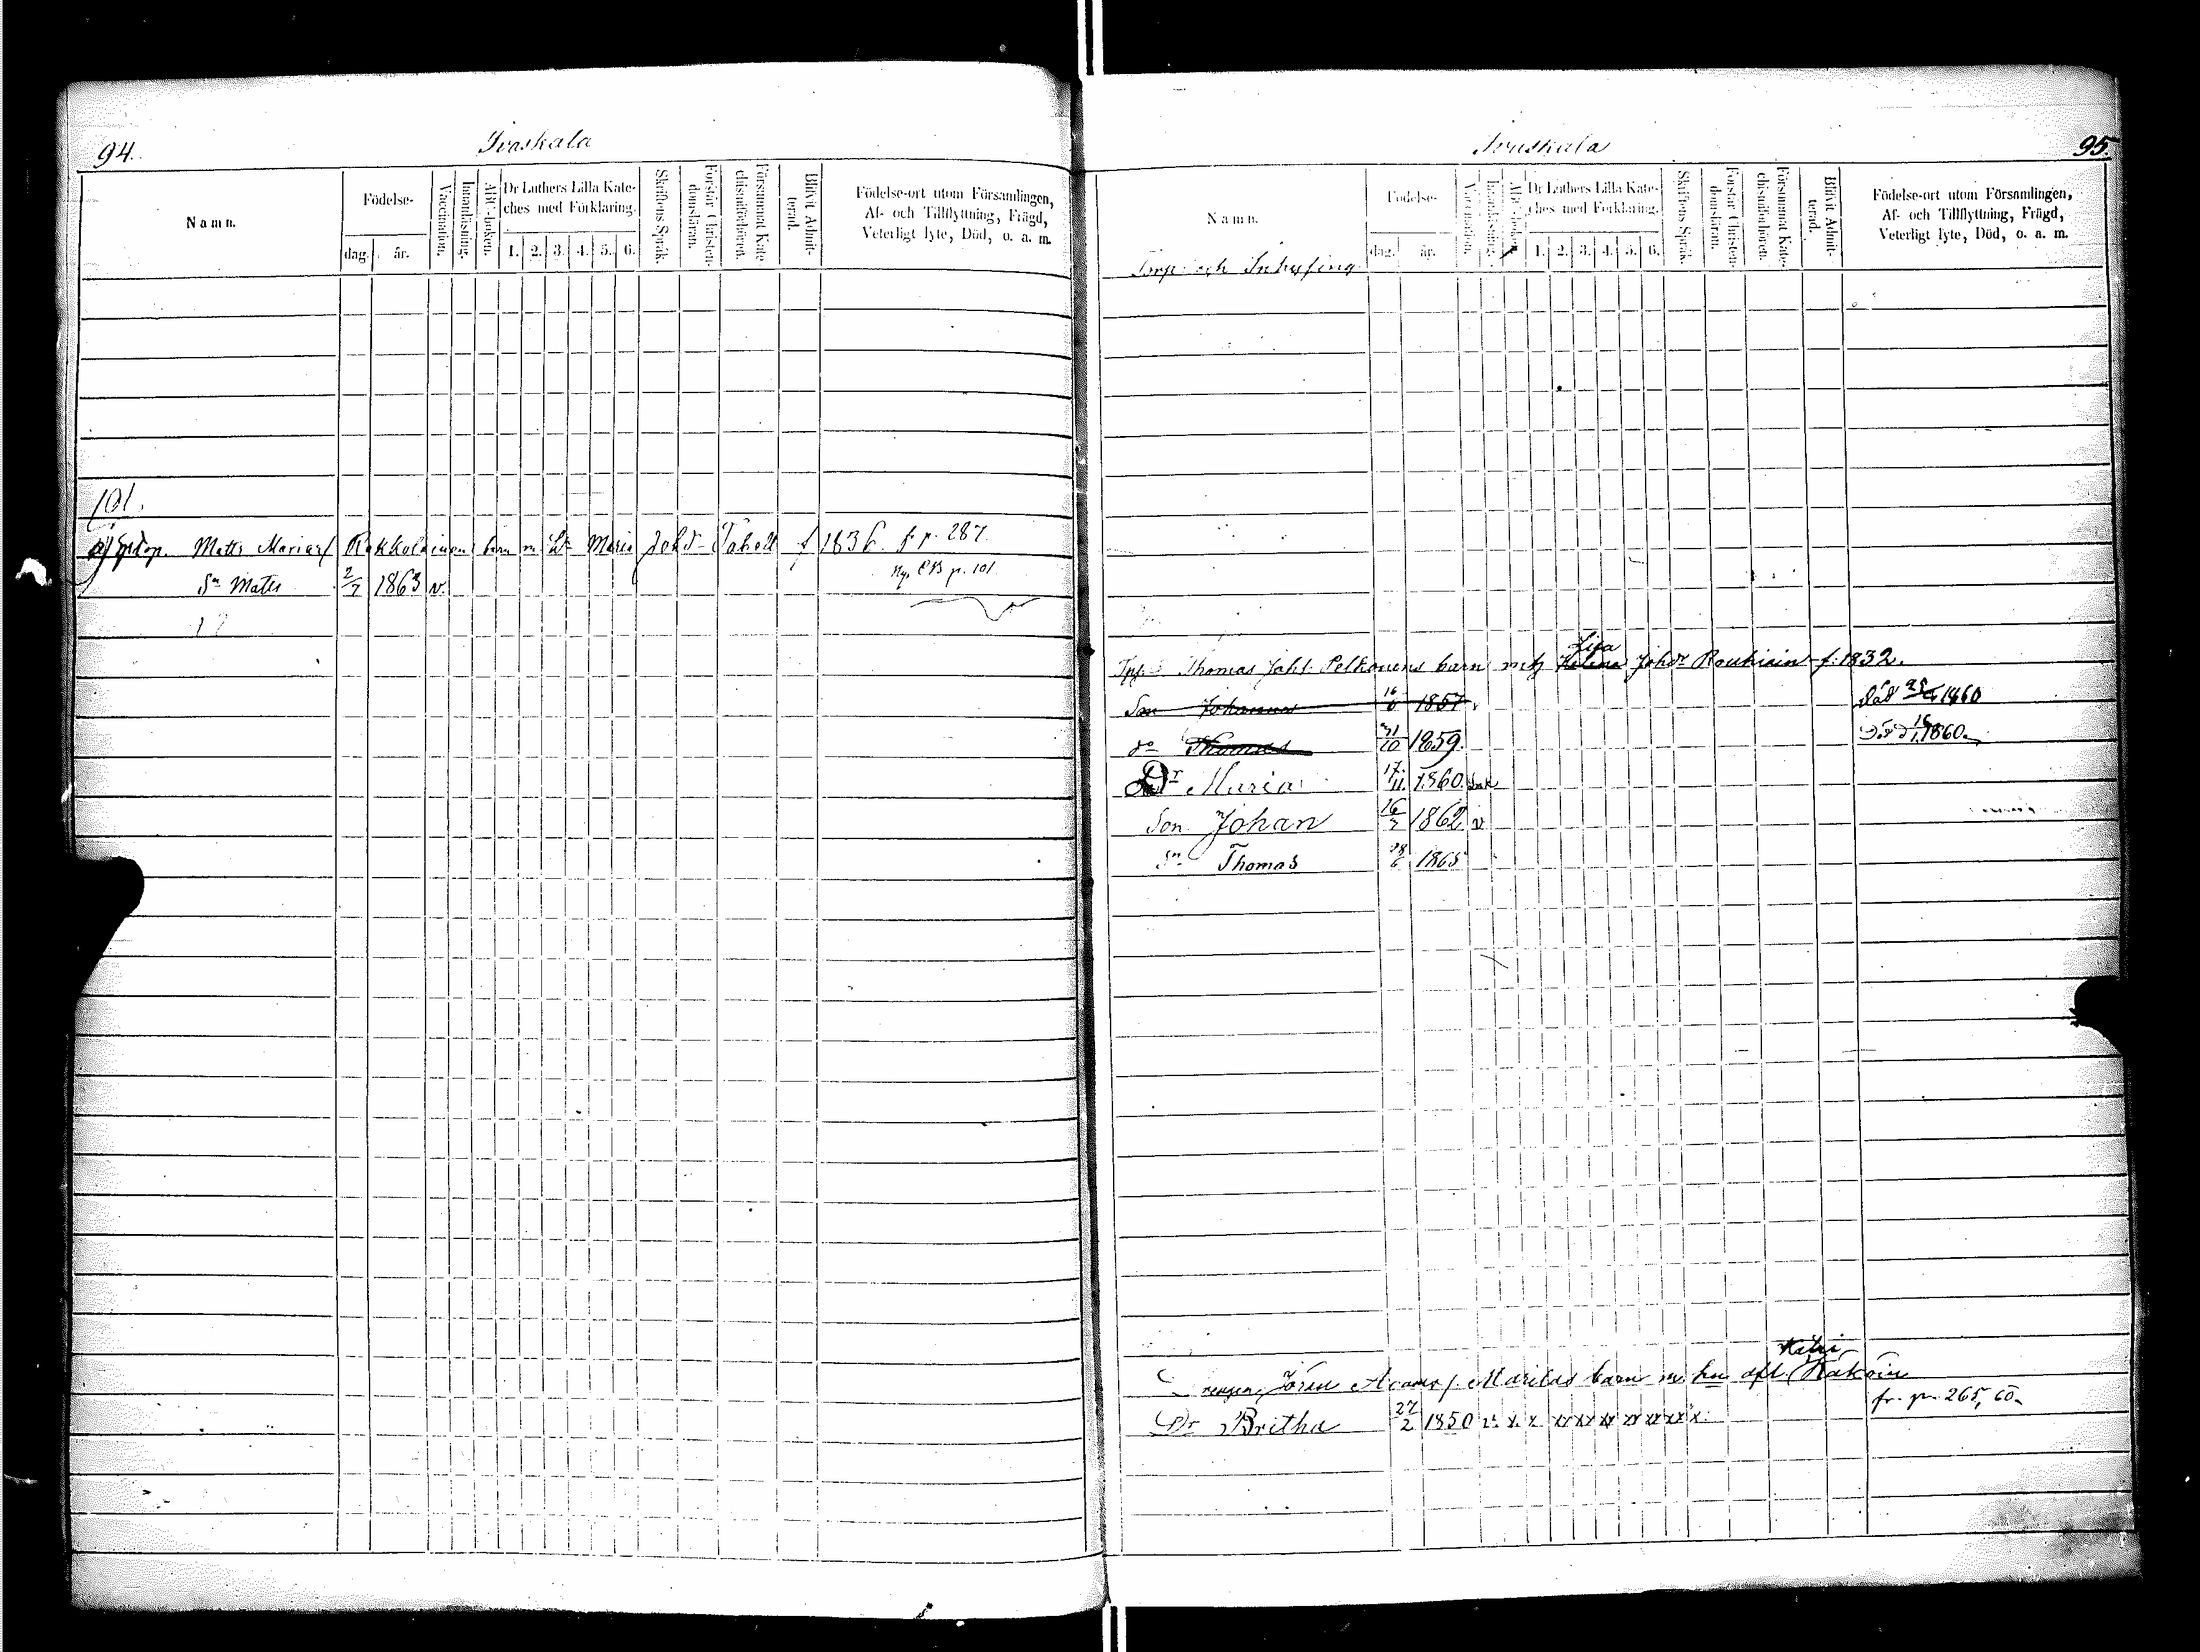 94.
Ivaskala
Namn.
Födelse-
dag.
år.
Vaccination.
Innanläsning.
ABC-boken.
Dr Luthers Lilla Kate-
ches med Förklaring.
1. 2. 3. 4. 5. 6.
Skriftens Språk.
Förstår Christen-
domsläran.
Försummat Kate-
chismiförhören.
Blifvit Admit-
terad.
Födelse-ort utom Församlingen,
Af- och Tillflyttning, Frägd,
Veterligt lyte, Död, o. a. m.
101.
Matts Mariasf Rakkolainens barn m h. Maria Johd. f 1836. f. p. 287.
Ny. CB p. 101
Sn Matts 2/7 1863 v.
95.
Ivaskala
Namn.
Födelse-
dag.
år.
Vaccination.
Innanläsning.
ABC-boken.
Dr Luthers Lilla Kate-
ches med Förklaring.
1. 2. 3. 4. 5. 6.
Skriftens Språk.
Förstår Christen-
domsläran.
Försummat Kate-
chismiförhören.
Blifvit Admit-
terad.
Födelse-ort utom Församlingen,
Af- och Tillflyttning, Frägd,
Veterligt lyte, Död, o. a. m.
Torp och Inhysing
Lisa
Thomas Pelkonens barn m h Helena Johdr Roukiain f. 1832.
Son Johannes 16/6 1857 död 1860
do Thomas 31/10 1859. Död 1860.
Dr Maria 17/11 1860.
Son Johan 16/7 1862 v
Sn Thomas 28/6 1865
Katri
Drengen Jöran Maritas barn m hu afl.
fr. p. 265, 60.
Dr Britha 27/2 1850 v. x x xx xx xx xx xx xx x